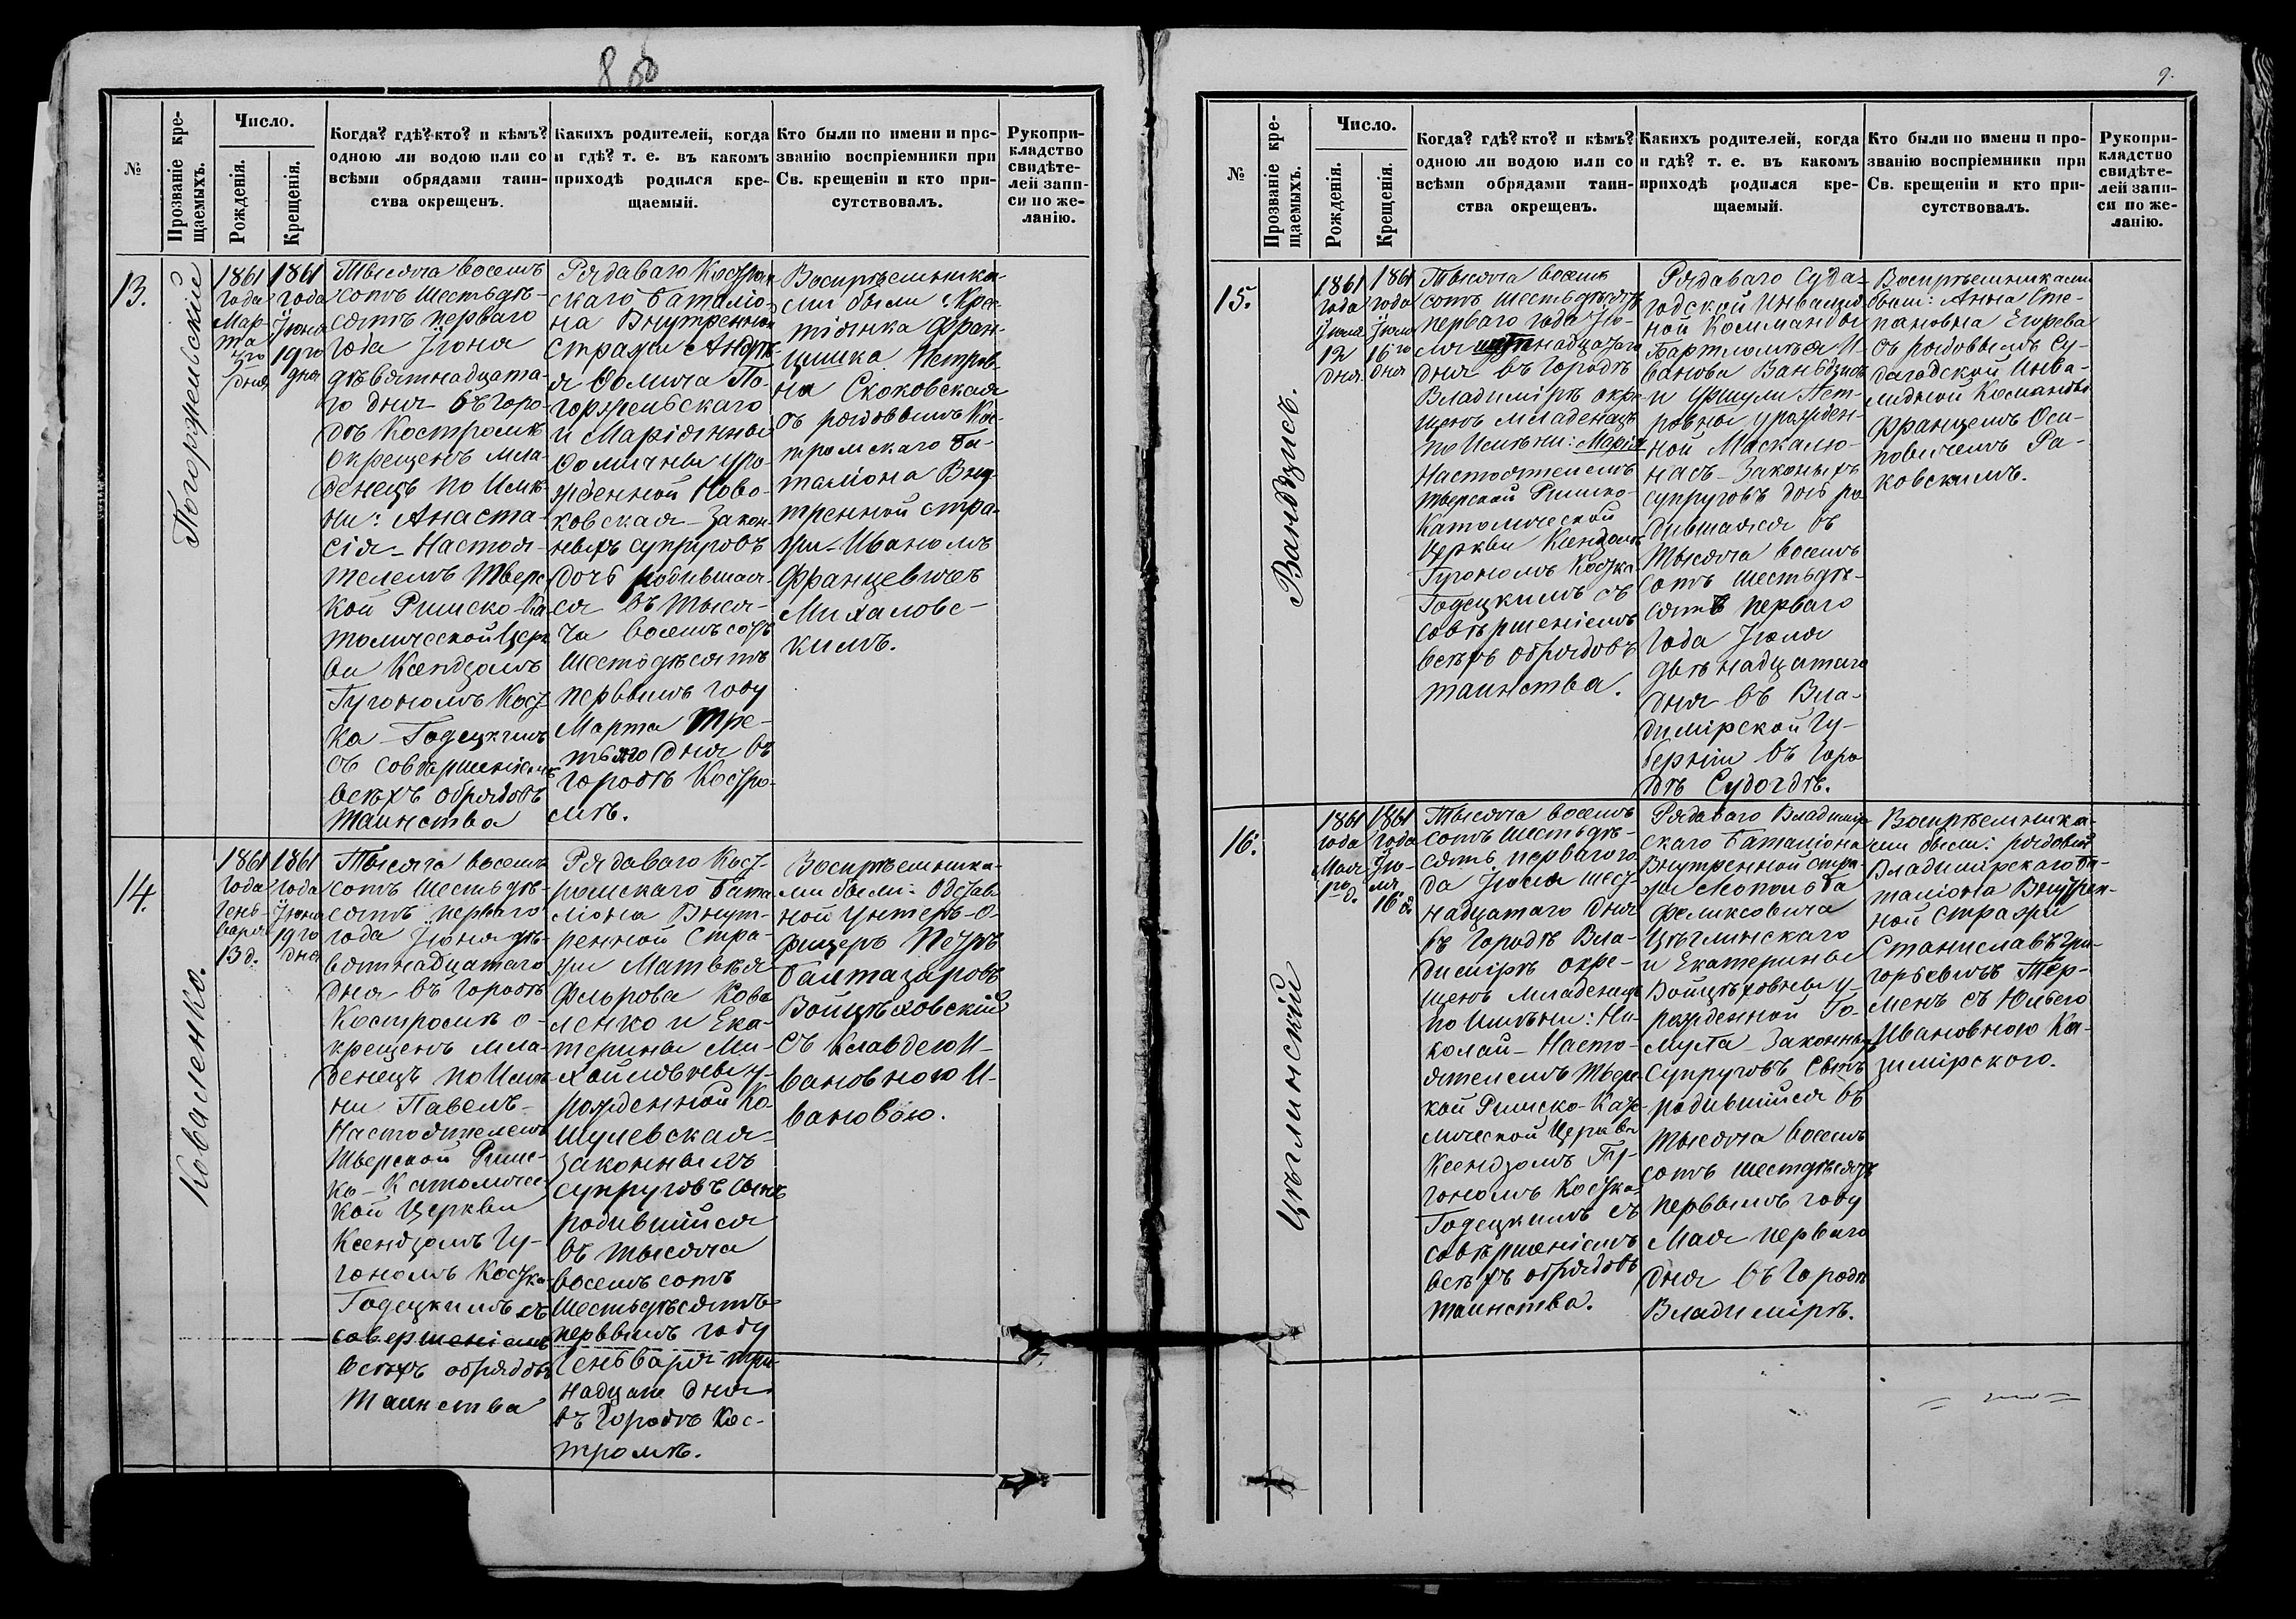 8
№
Прозваніе кре-
щаемыхъ.
Число.
Рожденія.
Крещенія.
Когда? гдѣ? кто? и кѣмъ?
одною ли водою или со
всѣми обрядами таин-
ства окрещенъ.
Какихъ родителей, когда
и гдѣ? т. е. въ какомъ
приходѣ родился кре-
щаемый.
Кто были по имени и про-
званію воспріемники при
Св. крещеніи и кто при-
сутствовалъ.
Рукопри-
кладство
свидѣте-
лей запи-
си по же-
ланію.
13.
Погоржельскіе
1861
года
Мар-
та
3го
дня
1861
года
Іюня
19го
дня
Тысяча восемъ
сотъ шестьдѣ-
сятъ перваго
года Іюня
дѣвятнадцата-
го дня въ горо-
дѣ Костромѣ
окрещенъ мла-
денецъ по имѣ-
ни: Анаста-
сія – Настоя-
телемъ Тверс-
кой Римско-Ка-
толической Церк
ви Ксендзомъ
Гугономъ Кост-
ка – Годецкимъ
съ совершеніемъ
всѣхъ обрядовъ
Таинства
Рядаваго Костром-
скаго Баталіо-
на Внутренной
Стражи Андрѣ-
я Фомича По-
горжельскаго
и Маріянны
Фомичны уро-
жденной Ново-
ковская – Закон-
ныхъ супруговъ
дочь родившая-
ся въ тыся-
ча восемъ сотъ
шестьдѣсятъ
первымъ году
Марта Тре-
тьяго дня въ
городѣ Костро-
мѣ.
Воспрѣемника-
ми были: Крес-
тіянка Фран-
цишка Петров-
на Скоковская
съ рядовымъ Кос-
тромскаго Ба-
таліона Вну-
тренной стра-
жи – Иваномъ
Францевичъ
Михаловс-
кимъ.
14.
Коваленко.
1861
года
Гень-
варя
13 д.
1861
года
Іюня
19го
дня
Тысяча восемъ
сотъ шестьдѣ-
сятъ перваго
года Іюня дѣ-
вятнадцатаго
дня въ городѣ
Костромѣ о-
крещенъ мла-
денецъ по имѣ-
ни Павелъ –
Настоятелемъ
Тверской Римс-
ко – Католичес-
кой Церкви
Ксендзомъ Гу-
гономъ Костка-
Годецкимъ съ
совершеніемъ
всѣхъ обрядовъ
Таинства
Рядаваго Кост-
ромскаго Бата
ліона Внут-
ренной Стра-
жи Матвѣя
Флорова Кова
ленко и Ека-
терины Ми-
хайловны у-
рожденной Ко-
шулевская –
законнымъ
супруговъ сынъ
родившійся
въ тысяча
восемъ сотъ
шестьдѣсятъ
первымъ году
Генваря три
надцать дня
въ городѣ Кос-
тромѣ.
Воспрѣемника-
ми были: Отстав-
ной Унтеръ-О-
фицеръ Петръ
Балтазаровъ
Войцѣховскій
съ Клавдею И-
вановною И-
вановою.
9.
№
Прозваніе кре-
щаемыхъ.
Число.
Рожденія.
Крещенія.
Когда? гдѣ? кто? и кѣмъ?
одною ли водою или со
всѣми обрядами таин-
ства окрещенъ.
Какихъ родителей, когда
и гдѣ? т. е. въ какомъ
приходѣ родился кре-
щаемый.
Кто были по имени и про-
званію воспріемники при
Св. крещеніи и кто при-
сутствовалъ.
Рукопри-
кладство
свидѣте-
лей запи-
си по же-
ланію.
15.
Ванбдзисъ.
1861
года
Іюля
12
дня
1861
года
Іюля
16го
дня
Тысяча восемъ
сотъ шестьдѣсятъ
перваго года Ію-
ля надцатаго
дня въ городѣ
Владимірѣ окре-
щенъ младенецъ
по имѣни: Марія
Настоятелемъ
Тверской Римско-
Католической
Церкви Ксендзомъ
Гугономъ Костка-
Годецкимъ съ
совершеніемъ
всѣхъ обрядовъ
таинства.
Рядаваго Суда-
годской Инвалид
ной Комманды
Бартломѣя И-
ванова Ванбдзисъ
и Уршули Пет-
ровны урожден-
ной Маскалю-
насъ – Законыхъ
супруговъ дочь ро
дившаяся въ
Тысяча восемъ
сотъ шестьдѣ-
сятъ перваго
года Іюля
двѣнадцатаго
дня въ Вла-
димірской Гу-
берніи въ горо
дѣ Судогдѣ.
Воспрѣемниками
были: Анна Сте-
пановна Егорева
съ рядовымъ Су-
дагодской Инва-
лидной Команды
Францемъ Оси-
повичемъ Ра-
ковскимъ.
16.
Цѣглинскій
1861
года
Мая
1го
д.
1861
года
Ію-
ля
16 д.
Тысяча восемъ
сотъ шестьдѣ-
сятъ перваго го
да Іюля шест-
надцатаго дня
въ городѣ Вла-
димірѣ окре-
щенъ младенецъ
по имѣни: Ни-
колай – Насто-
ятелемъ Тверс-
кой Римско-Като-
лической Церкви
Ксендзомъ Гу-
гономъ Костка-
Годецкимъ съ
совѣршеніемъ
всѣхъ обрядовъ
таинства.
Рядаваго Владимір
скаго Баталіона
Внутренной стра-
жи
Феликсовича
Цѣглинскаго
и Екатерины
Войцѣховны у-
рожденной Го-
мулта – Законныхъ
Супруговъ Сынъ
родившійся въ
тысяча восемъ
сотъ шестдѣсятъ
первымъ году
Мая перваго
дня въ городѣ
Владимірѣ.
Воспрѣемника-
ми были: рядовый
Владимірскаго Ба-
таліона Внутрен-
ной Стражи
Станиславъ Гри-
горьевичъ Тер-
менъ съ Юліею
Ивановною Ка-
зимірского.